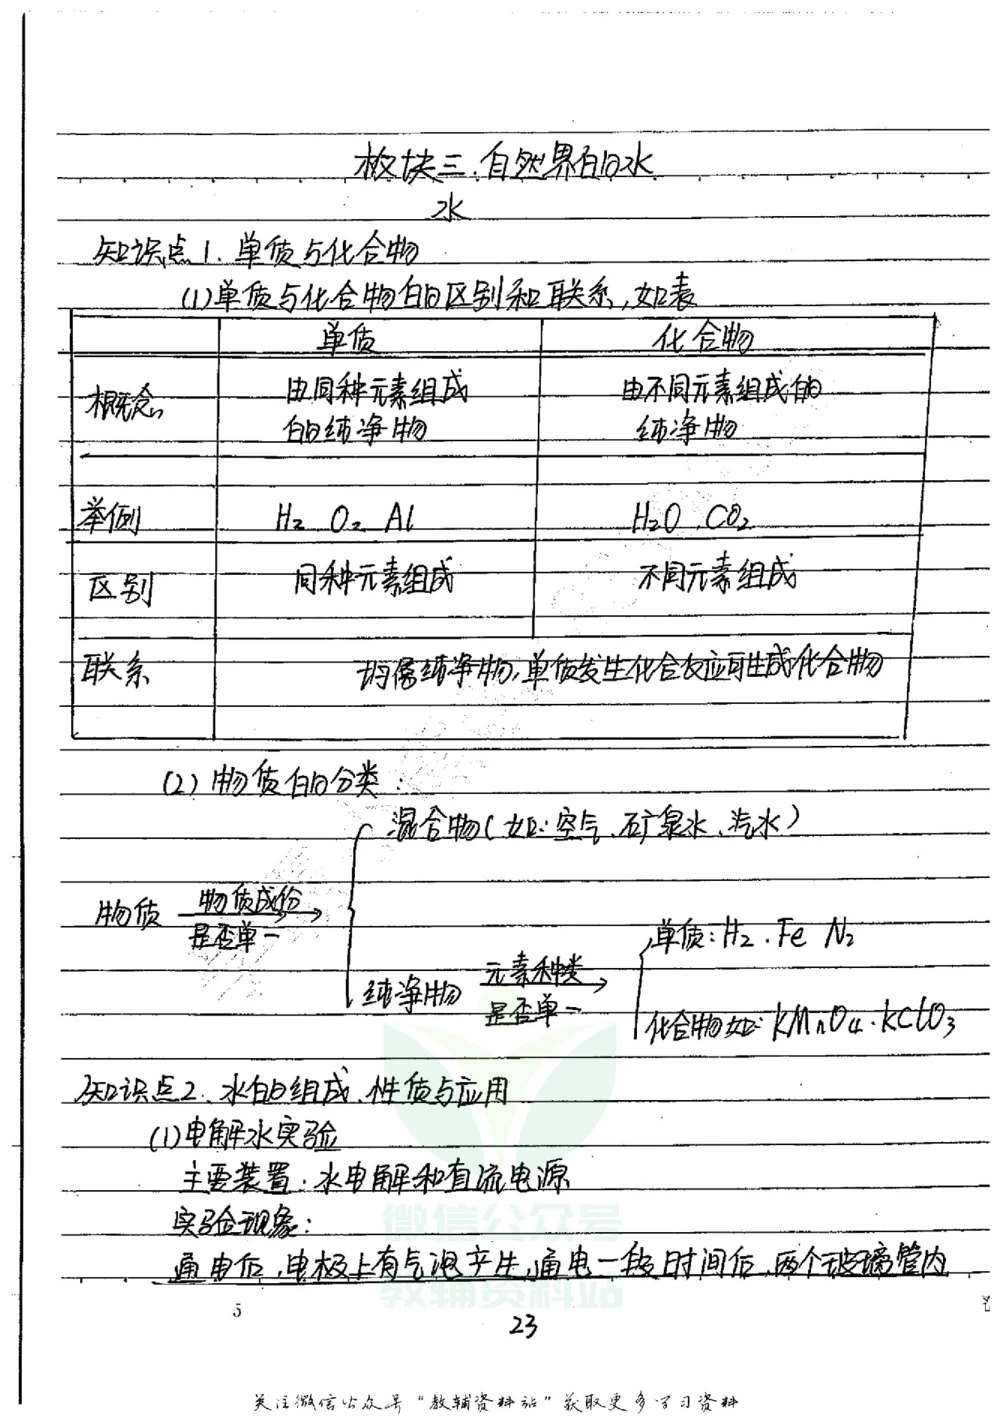 板块三.自然界的水
水
知识点1.单质与化合物
(1)单质与化合物的区别和联系,如表
单质 化合物
概念 由同种元素组成的纯净物 由不同元素组成的纯净物
举例 H₂ O₂ Al H₂O .CO₂
区别 同种元素组成 不同元素组成
联系 均属纯净物,单质发生化合反应可生成化合物
(2)物质的分类:
混合物(如:空气、矿泉水、汽水)
物质 物质成份
是否单一
单质:H₂.Fe N₂
纯净物 元素种类
是否单一
化合物如:KMnO₄.KClO₃
知识点2.水的组成、性质与应用
(1)电解水实验
主要装置:水电解和直流电源
实验现象:
通电后,电极上有气泡产生,通电一段时间后,两个玻璃管内
微信公众号
教辅资料站
5
23
关注微信公众号"教辅资料站"获取更多学习资料